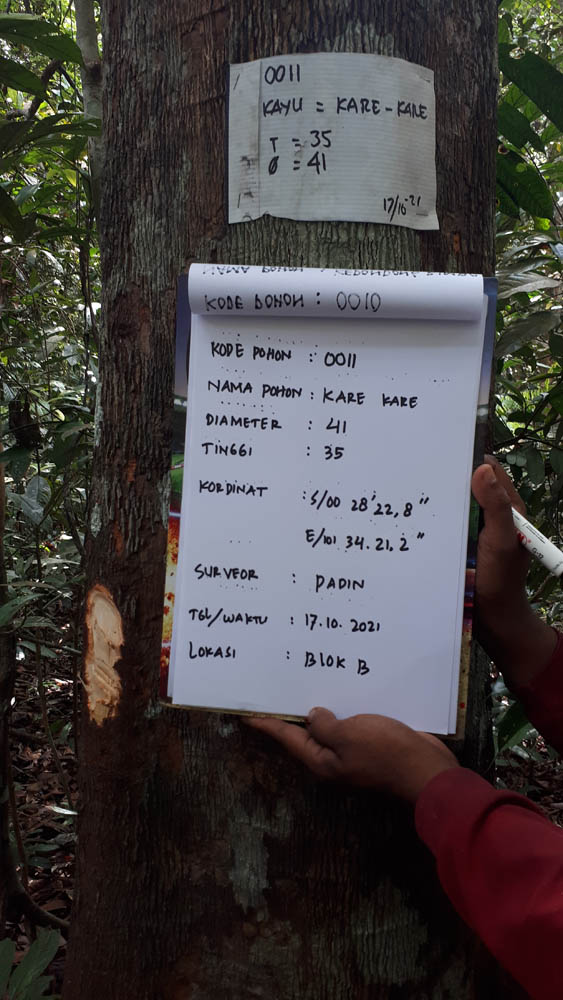 0011
KAYU = KARE - KARE
T = 35
Ø = 41
17/10-21
KODE POHON : 0010
KODE POHON : 0011
NAMA POHON : KARE KARE
DIAMETER : 41
TINGGI : 35
KORDINAT : S/00 28' 22,8"
E/101 34. 21, 2"
SURVEOR : DADIN
TGL/WAKTU : 17.10.2021
LOKASI : BLOK B